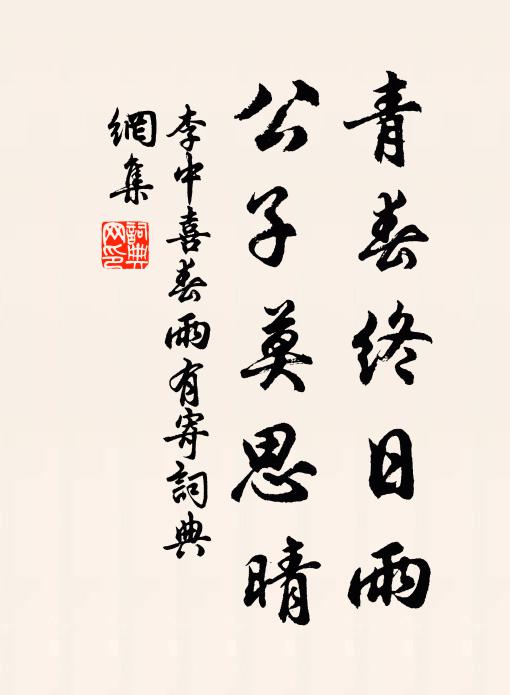 青春終日雨
公子莫思晴
李中喜春雨有寄詞典
網集
詞典
网印